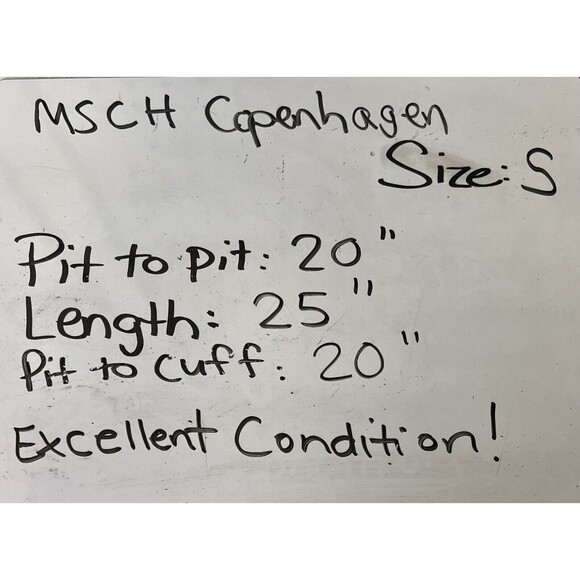 MSCH Copenhagen
Size: S
Pit to pit: 20"
Length: 25"
Pit to cuff: 20"
Excellent Condition!